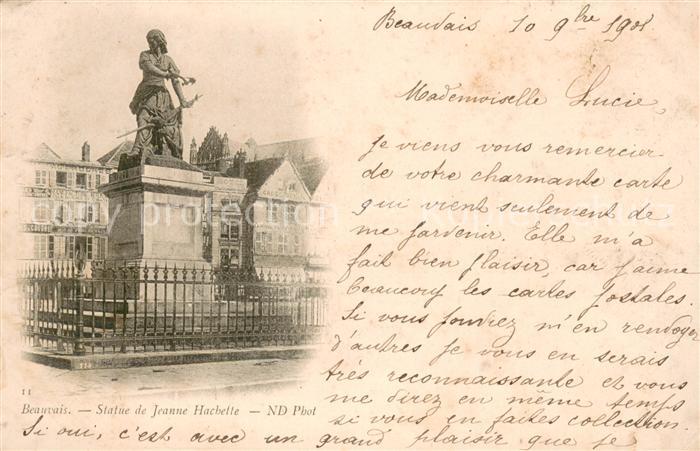 Beauvais 10 9bre 1901
Mademoiselle Lucie,
Je viens vous remercier
de votre charmante carte
qui vient seulement de
me parvenir. Elle m'a
fait bien plaisir, car j'aime
beaucoup les cartes postales.
Si vous pouvez m'en renvoyer
d'autres je vous en serais
très reconnaissante et vous
me direz en même temps
si vous en faites collection.
11
Beauvais. — Statue de Jeanne Hachette — ND Phot
Si oui, c'est avec un grand plaisir que je